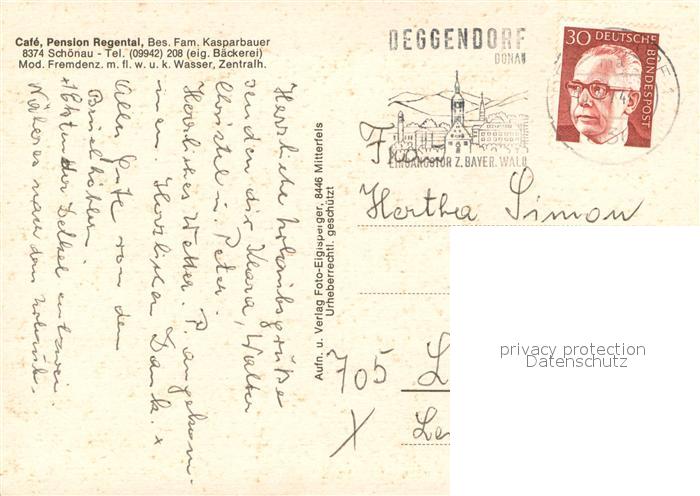 Café, Pension Regental, Bes. Fam. Kasparbauer
8374 Schönau - Tel. (09942) 208 (eig. Bäckerei)
Mod. Fremdenz. m. fl. w. u. k. Wasser, Zentralh.
Herzliche Urlaubsgrüße
senden dir Klara, Walter
Christel u. Peter.
Herrliches Wetter. P. angekom-
men Herzlichen Dank. x
Alles Gute von den
x 16 Stunden
Näheres nach dem Urlaub.
Aufn. u. Verlag Foto-Eiglsperger, 8446 Mitterfels
Urheberrechtl. geschützt
DEGGENDORF
DONAU
EINGANGSTOR Z. BAYER. WALD
30 DEUTSCHE BUNDESPOST
Frau
Hertha Simon
705 L
x Le
privacy protection
Datenschutz